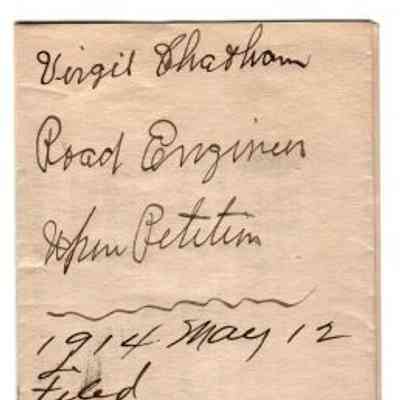 Virgil Chatham
Road Engineer
Upon Petition
1914 May 12
Filed